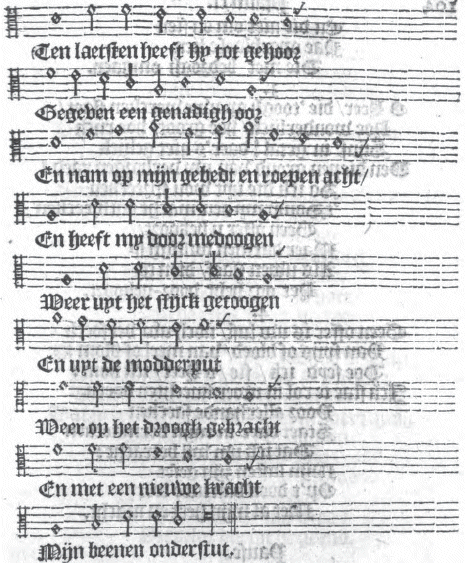 Ten laetsten heeft hy tot gehoor
Gegeven een genadigh oor
En nam op mijn gebedt en roepen acht/
En heeft my door medoogen
Weer uyt het slijck getoogen
En uyt de modderput
Weer op het droogh gebracht
En met een nieuwe kracht
Mijn beenen onderstut.